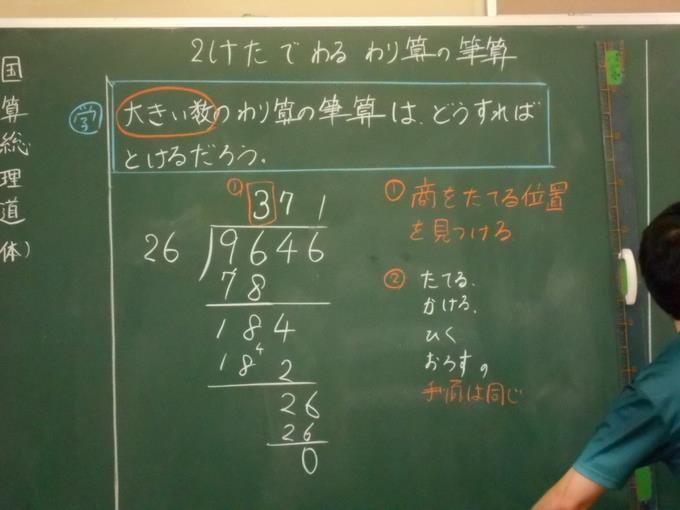 2けたでわる わり算の筆算
国
算
総
理
道
体)
学
大きい数のわり算の筆算は、どうすれば
とけるだろう。
① 371
26)9646
78
184
18⁴2
26
26
0
① 商をたてる位置
を見つける
② たてる、
かける、
ひく
おろすの
手順は同じ